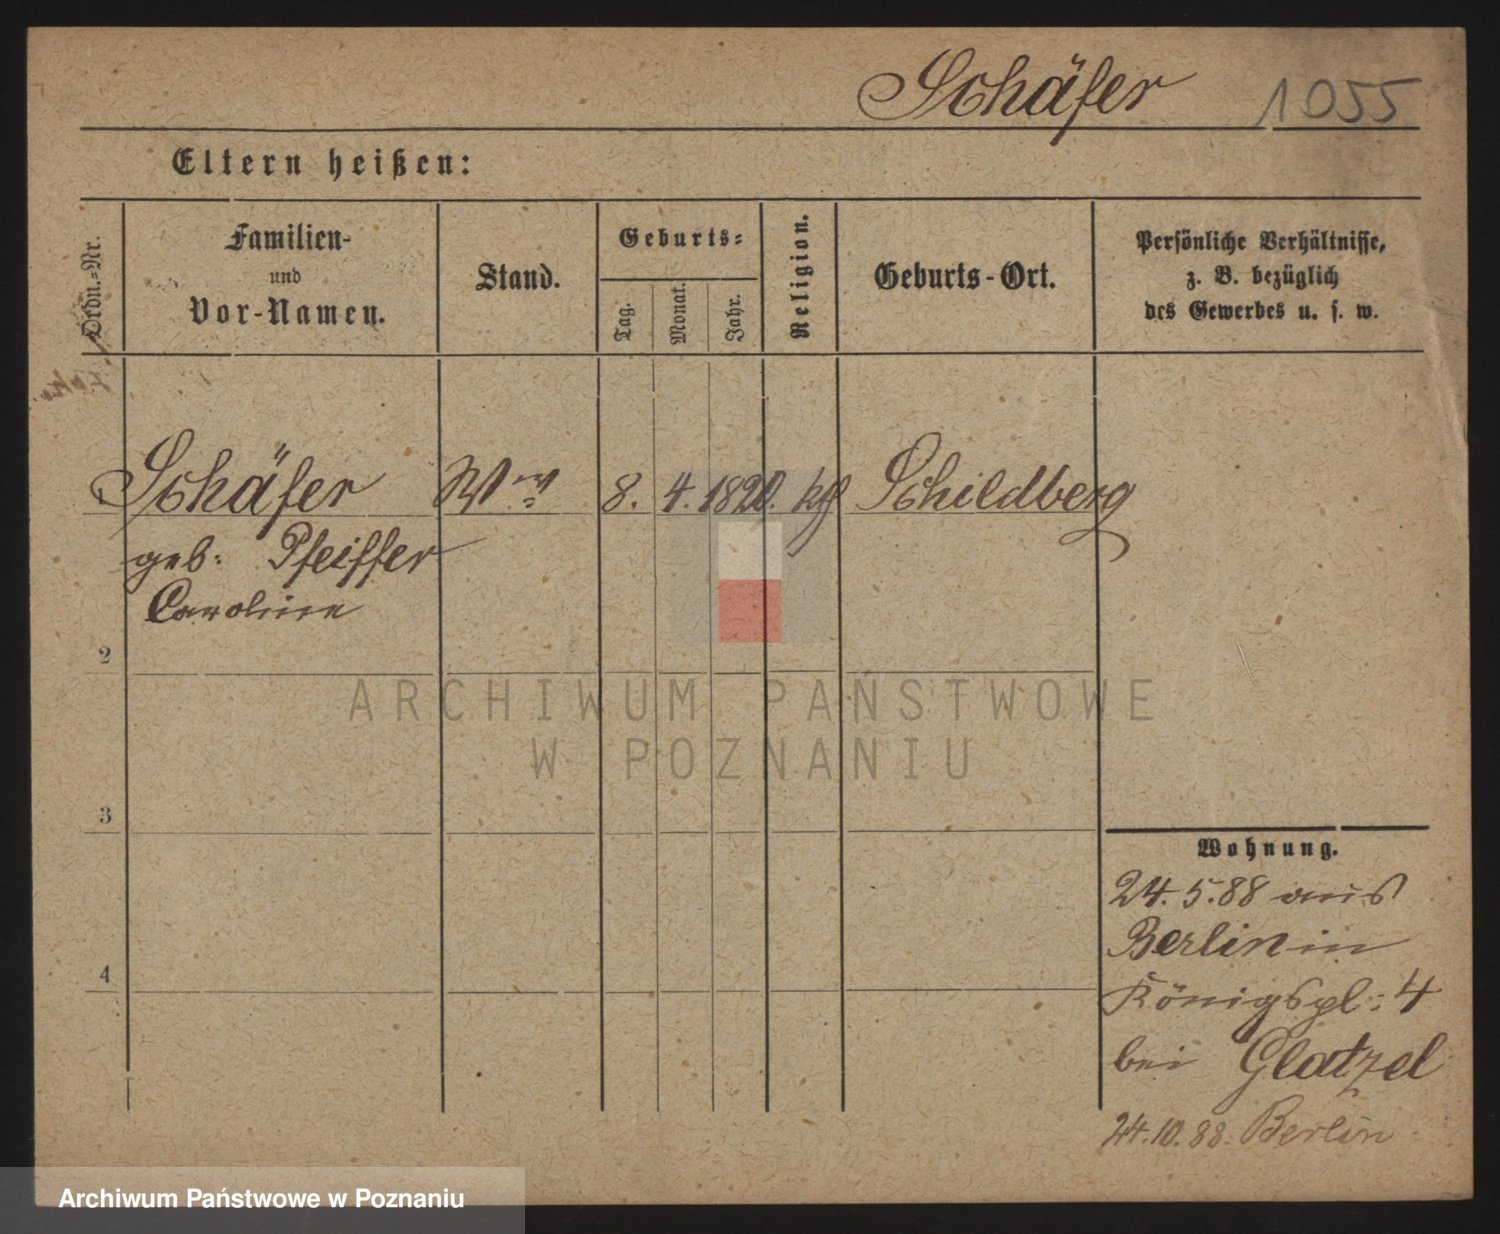 Schäfer 1055
Eltern heißen:
Ordn.-Nr.
Familien-
und
Vor-Namen.
Stand.
Geburts-
Tag.
Monat.
Jahr.
Religion.
Geburts-Ort.
Persönliche Verhältnisse,
z. B. bezüglich
des Gewerbes u. s. w.
1 Schäfer Wwe 8. 4. 1820. kth Schildberg
geb: Pfeiffer
Caroline
2
3
4
Wohnung.
24. 5. 88 aus
Berlin in
Königspl: 4
bei Glatzel
24. 10. 88. Berlin
ARCHIWUM PAŃSTWOWE
W POZNANIU
Archiwum Państwowe w Poznaniu